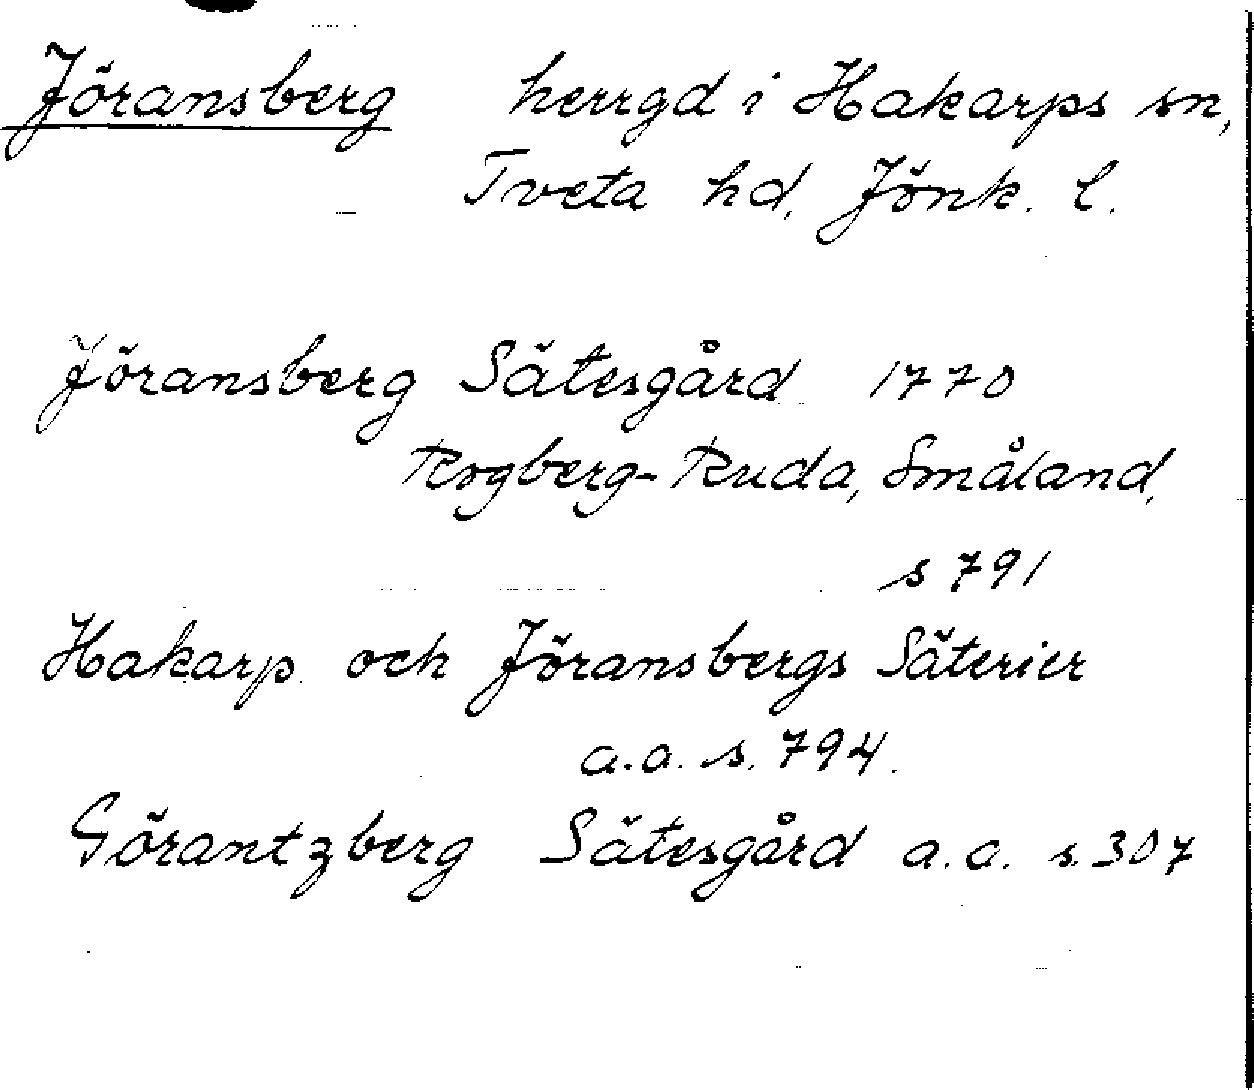 Jöransberg herrgd i Hakarps sn,
Tveta hd, Jönk. l.
Jöransberg Sätesgård 1770
Rogberg-Ruda, Småland,
s 791
Hakarp och Jöransbergs Säterier
a.a. s. 794.
Görantzberg Sätesgård a.a. s. 307